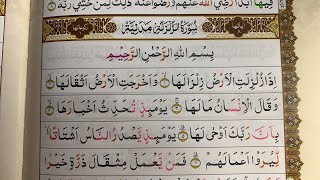 فِيهَا أَبَدًا رَضِيَ اللهُ عَنْهُمْ وَرَضُوا عَنْهُ ذٰلِكَ لِمَنْ خَشِيَ رَبَّهُ
سُورَةُ الزَّلْزَلَةِ مَدَنِيَّةٌ
بِسْمِ اللهِ الرَّحْمٰنِ الرَّحِيمِ
اِذَا زُلْزِلَتِ الْاَرْضُ زِلْزَالَهَا وَاَخْرَجَتِ الْاَرْضُ اَثْقَالَهَا
وَقَالَ الْاِنْسَانُ مَالَهَا يَوْمَئِذٍ تُحَدِّثُ اَخْبَارَهَا
بِاَنَّ رَبَّكَ اَوْحٰى لَهَا يَوْمَئِذٍ يَصْدُرُ النَّاسُ اَشْتَاتًا
لِيُرَوْا اَعْمَالَهُمْ فَمَنْ يَعْمَلْ مِثْقَالَ ذَرَّةٍ خَيْرًا